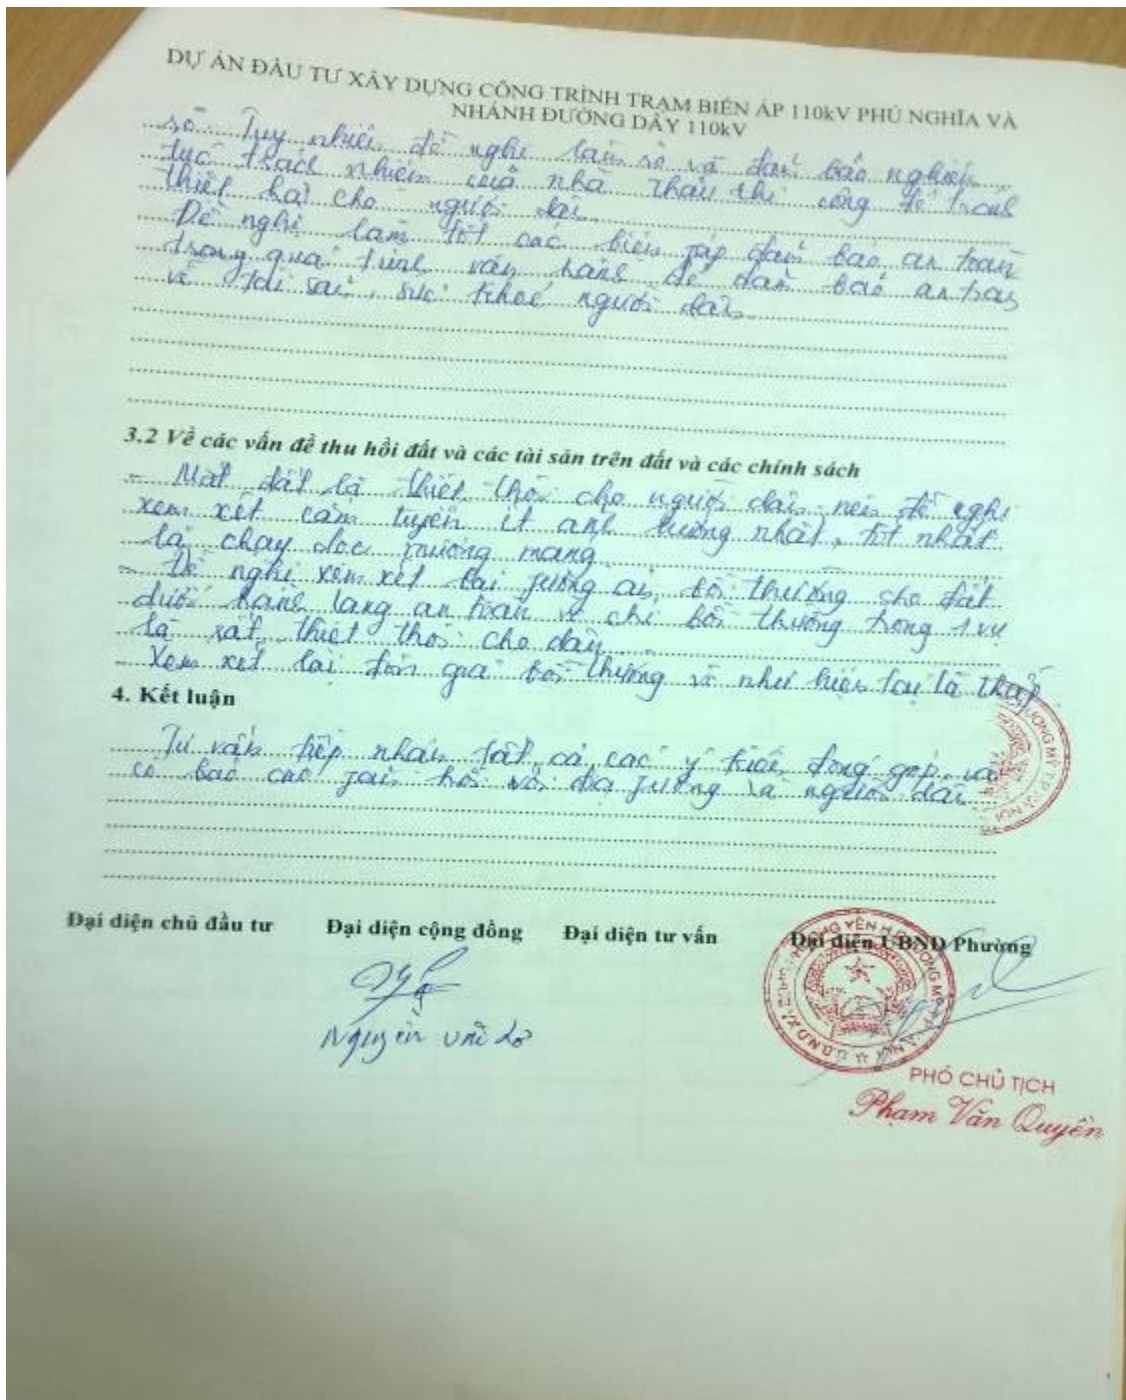 DỰ ÁN ĐẦU TƯ XÂY DỰNG CÔNG TRÌNH TRẠM BIẾN ÁP 110kV PHÚ NGHĨA VÀ
NHÁNH ĐƯỜNG DÂY 110kV
Tuy nhiên đề nghị làm rõ và đảm bảo nghiêm
túc trách nhiệm của nhà thầu thi công để tránh
thiệt hại cho người dân
Đề nghị làm tốt các biện pháp đảm bảo an toàn
trong quá trình vận hành để đảm bảo an toàn
về tài sản, sức khoẻ người dân
3.2 Về các vấn đề thu hồi đất và các tài sản trên đất và các chính sách
- Mất đất là thiệt thòi cho người dân nên đề nghị
xem xét cắm tuyến ít ảnh hưởng nhất, tốt nhất
là chạy dọc mương máng
- Đề nghị xem xét lại phương án bồi thường cho đất
dưới hành lang an toàn vì chỉ bồi thường trong 1 vụ
là rất thiệt thòi cho dân
- Xem xét lại đơn giá bồi thường vì như hiện tại là thấp
4. Kết luận
Tư vấn tiếp nhận tất cả các ý kiến đóng góp và
có báo cáo phản hồi với địa phương và người dân
Đại diện chủ đầu tư Đại diện cộng đồng Đại diện tư vấn Đại diện UBND Phường
Nguyễn
PHÓ CHỦ TỊCH
Phạm Văn Quyên